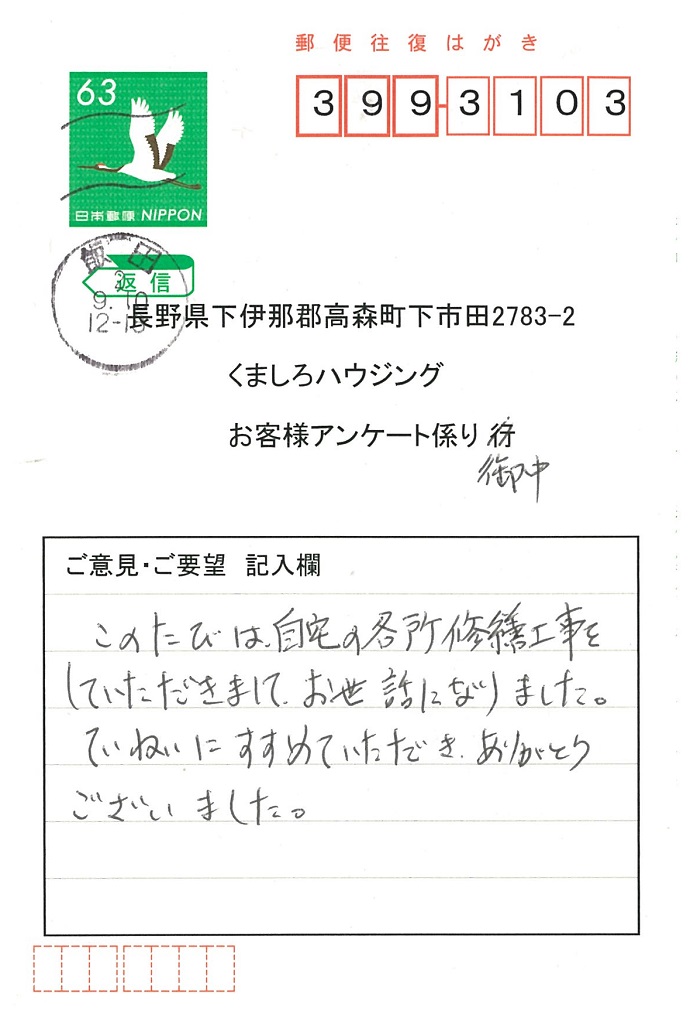 郵便往復はがき
63
399-3103
日本郵便 NIPPON
飯田
返信
9.10
長野県下伊那郡高森町下市田2783-2
くましろハウジング
お客様アンケート係り 行
御中
ご意見・ご要望 記入欄
このたびは、自宅の各所修繕工事を
していただきまして、お世話になりました。
ていねいにすすめていただき、ありがとう
ございました。